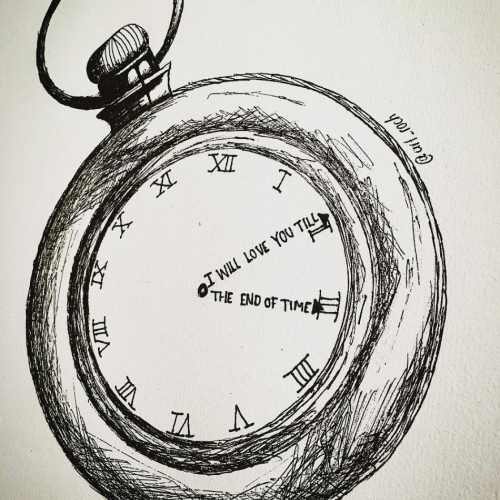 XII
I
II
III
IIII
V
VI
VII
VIII
IX
X
XI
I WILL LOVE YOU TILL
THE END OF TIME